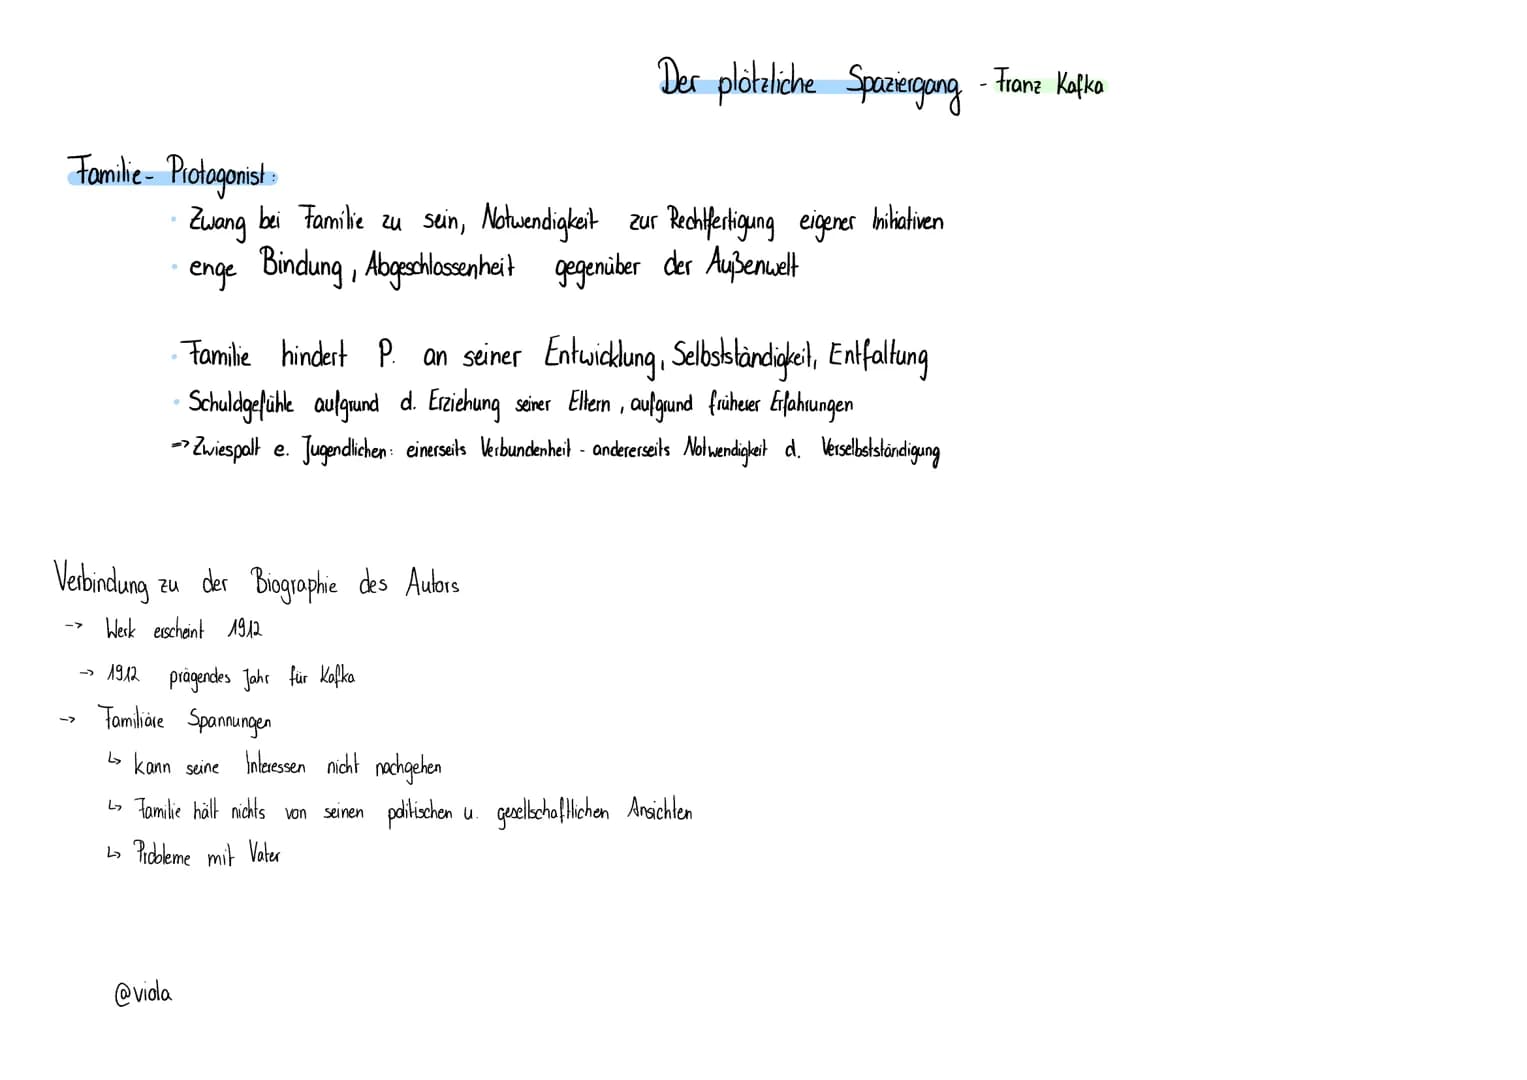 Der plötzliche Spaziergang - Franz Kafka
Familie - Protagonist:
• Zwang bei Familie zu sein, Notwendigkeit zur Rechtfertigung eigener Initiativen
• enge Bindung, Abgeschlossenheit gegenüber der Außenwelt
• Familie hindert P. an seiner Entwicklung, Selbstständigkeit, Entfaltung
• Schuldgefühle aufgrund d. Erziehung seiner Eltern, aufgrund früherer Erfahrungen
=> Zwiespalt e. Jugendlichen: einerseits Verbundenheit - andererseits Notwendigkeit d. Verselbstständigung
Verbindung zu der Biographie des Autors
-> Werk erscheint 1912
-> 1912 prägendes Jahr für Kafka
-> Familiäre Spannungen
↳ kann seine Interessen nicht nachgehen
↳ Familie hält nichts von seinen politischen u. gesellschaftlichen Ansichten
↳ Probleme mit Vater
@viola